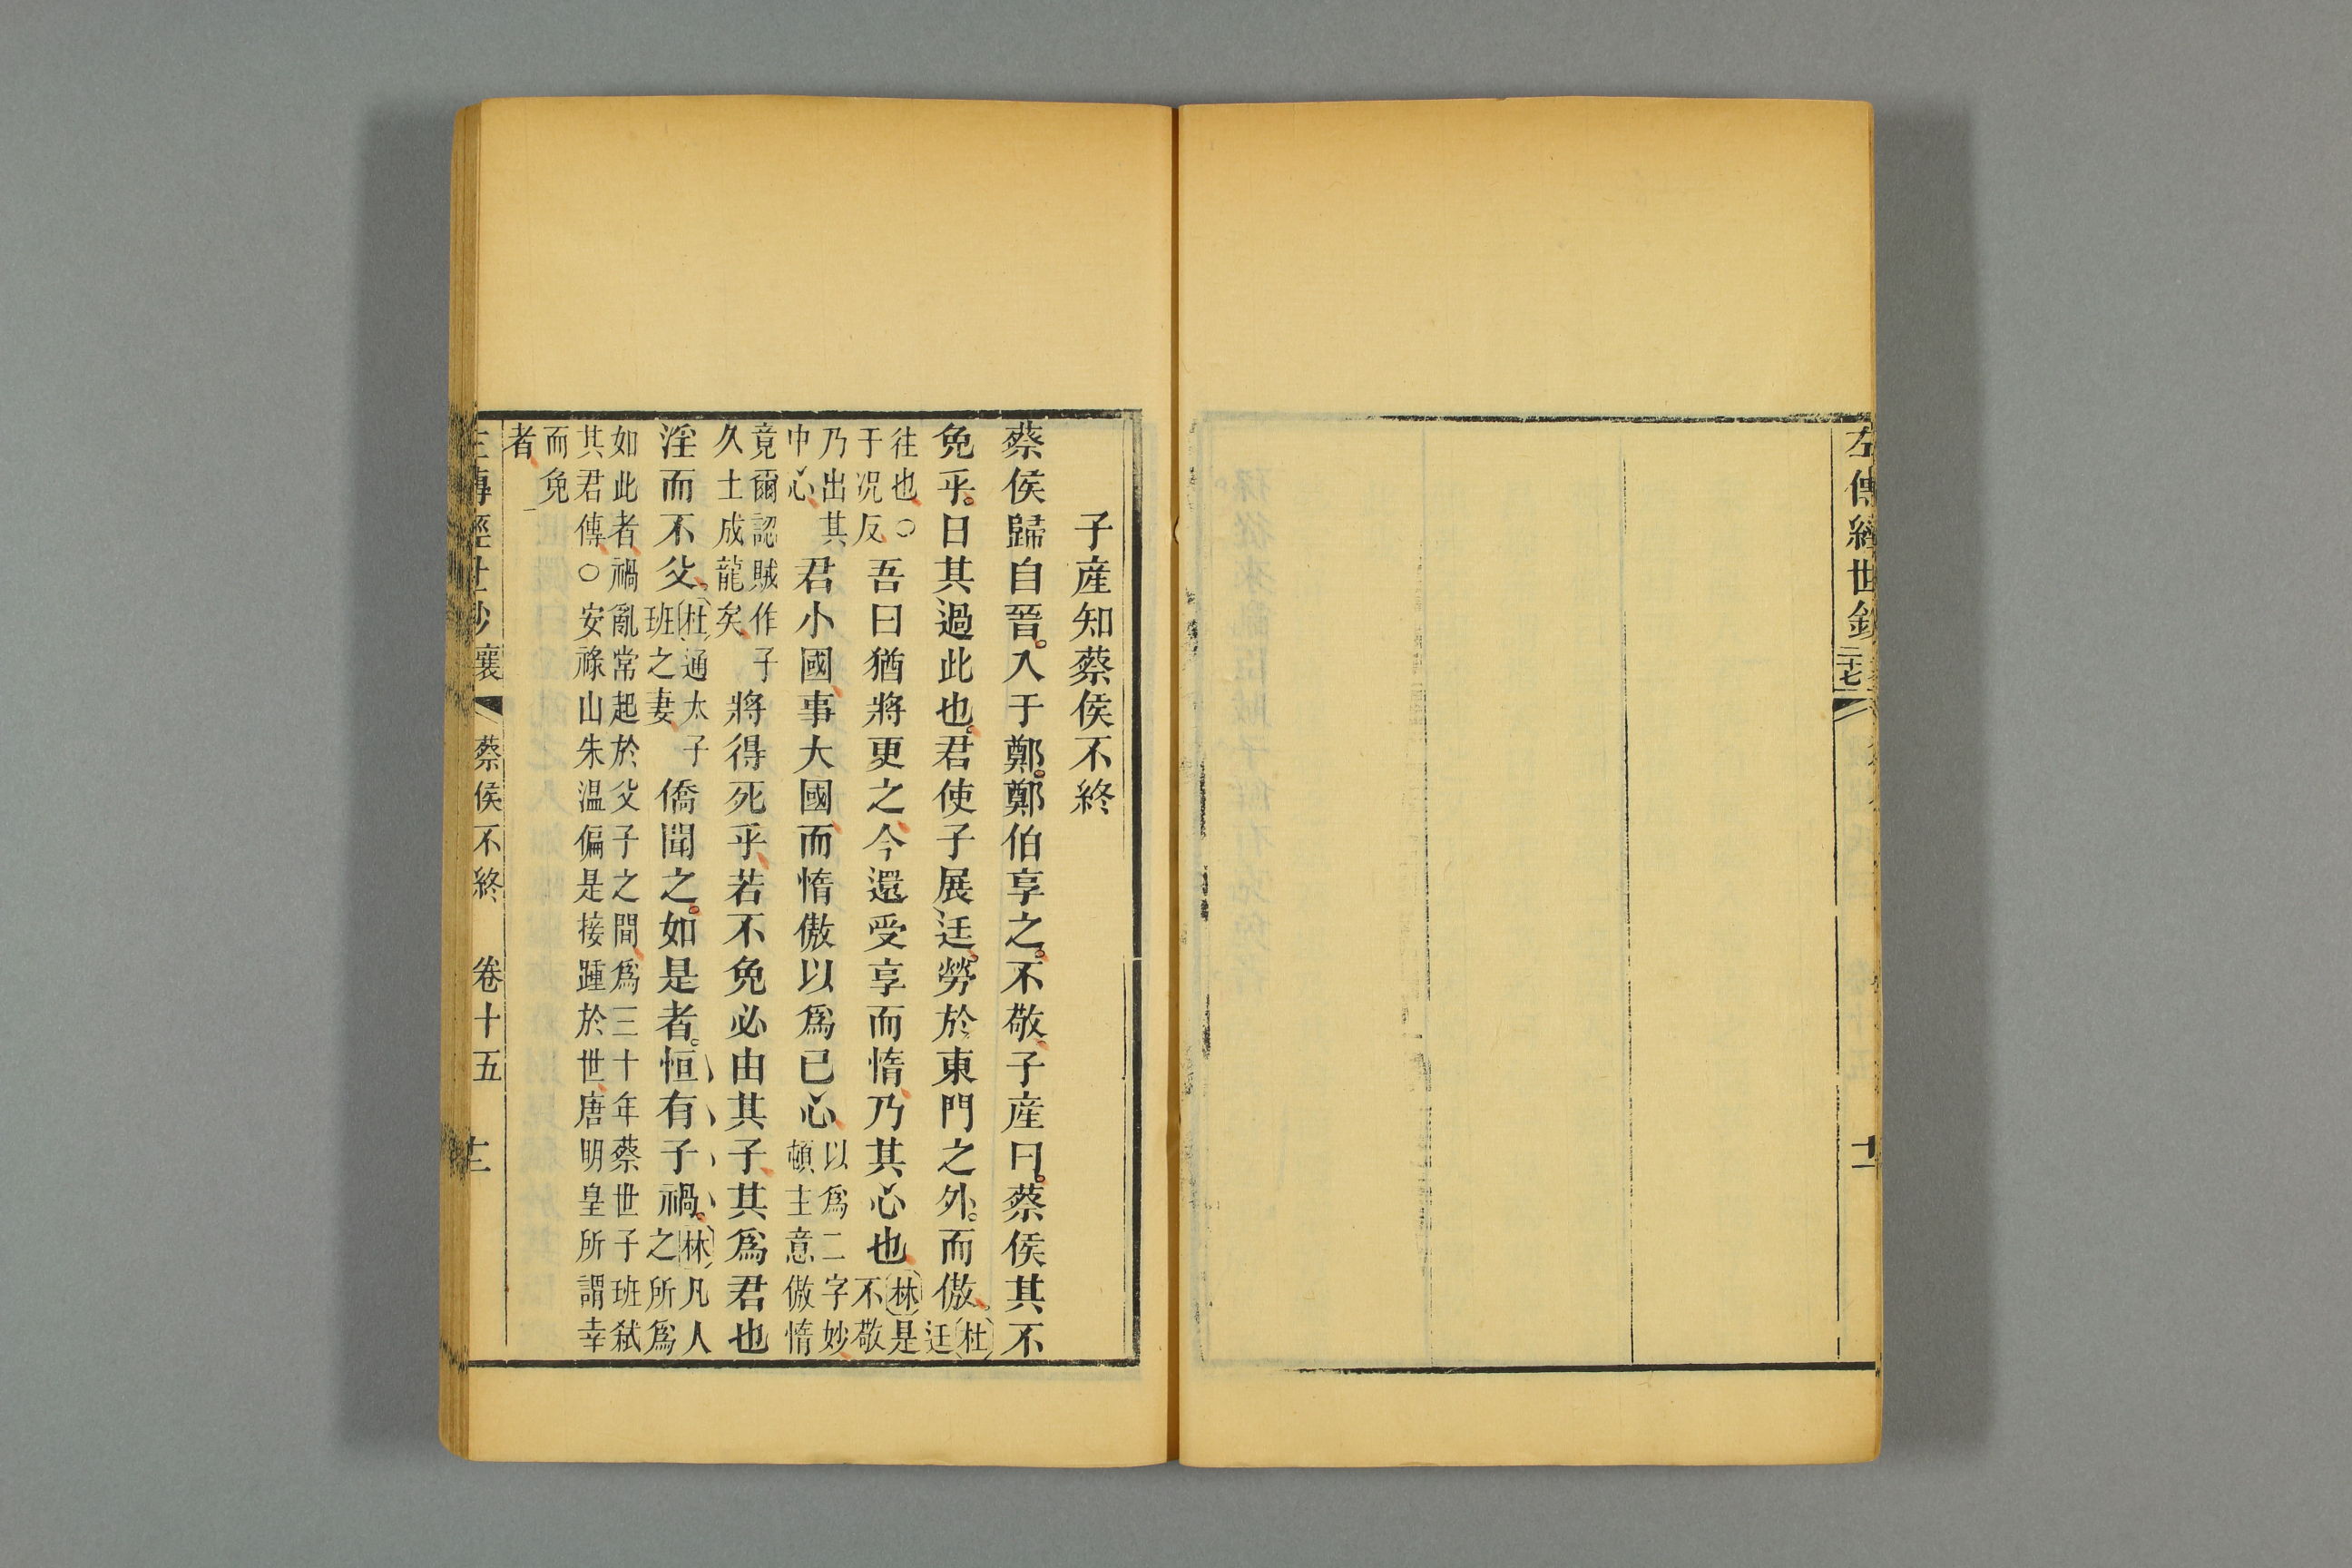 左傳經世鈔
二十七
十一
子產知蔡侯不終
蔡侯歸自晉。入于鄭。鄭伯享之。不敬、子產曰。蔡侯其不
免乎。日其過此也。君使子展迋、勞於東門之外。而傲、杜迋
往也、○于况反、吾曰猶將更之、今還受享而惰、乃其心也、林是不敬
乃出其中心、君小國事大國、而惰傲以爲已心、以爲二字妙、頓主意傲惰
竟爾認賊作子久土成龍矣、將得死乎、若不免必由其子、其爲君也
淫而不父。杜通太子班之妻、僑聞之。如是者。恒有子禍。林凡人之所爲
如此者、禍亂常起於父子之間、爲三十年蔡世子班弑
其君傳、○安祿山朱温偏是接踵於世、唐明皇所謂幸
而免
者、
左傳經世鈔 襄 蔡侯不終 卷十五 十二